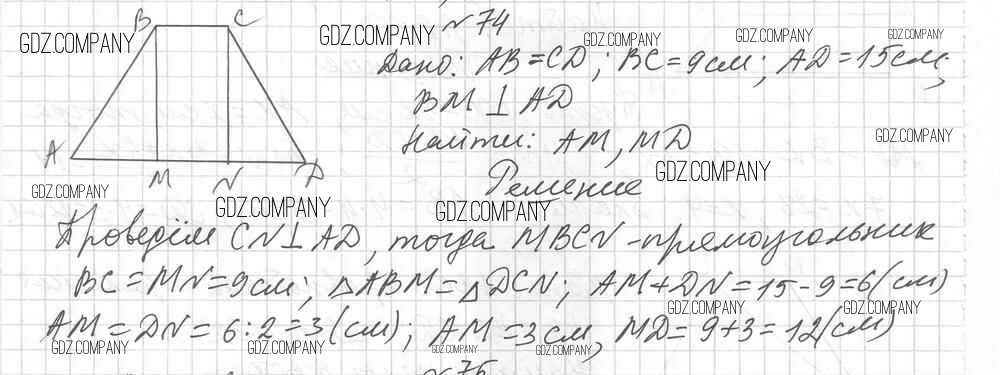 B C
№ 74
GDZ.COMPANY GDZ.COMPANY GDZ.COMPANY GDZ.COMPANY GDZ.COMPANY
Дано: AB = CD; BC = 9 см; AD = 15 см;
BM ⊥ AD
Найти: AM, MD
GDZ.COMPANY
A M N D
GDZ.COMPANY
Решение
GDZ.COMPANY
GDZ.COMPANY GDZ.COMPANY
Проведём CN ⊥ AD, тогда MBCN - прямоугольник
BC = MN = 9 см; △ABM = △DCN; AM + DN = 15 - 9 = 6 (см)
GDZ.COMPANY GDZ.COMPANY
AM = DN = 6 : 2 = 3 (см); AM = 3 см, MD = 9 + 3 = 12 (см)
GDZ.COMPANY GDZ.COMPANY GDZ.COMPANY GDZ.COMPANY
№ 75